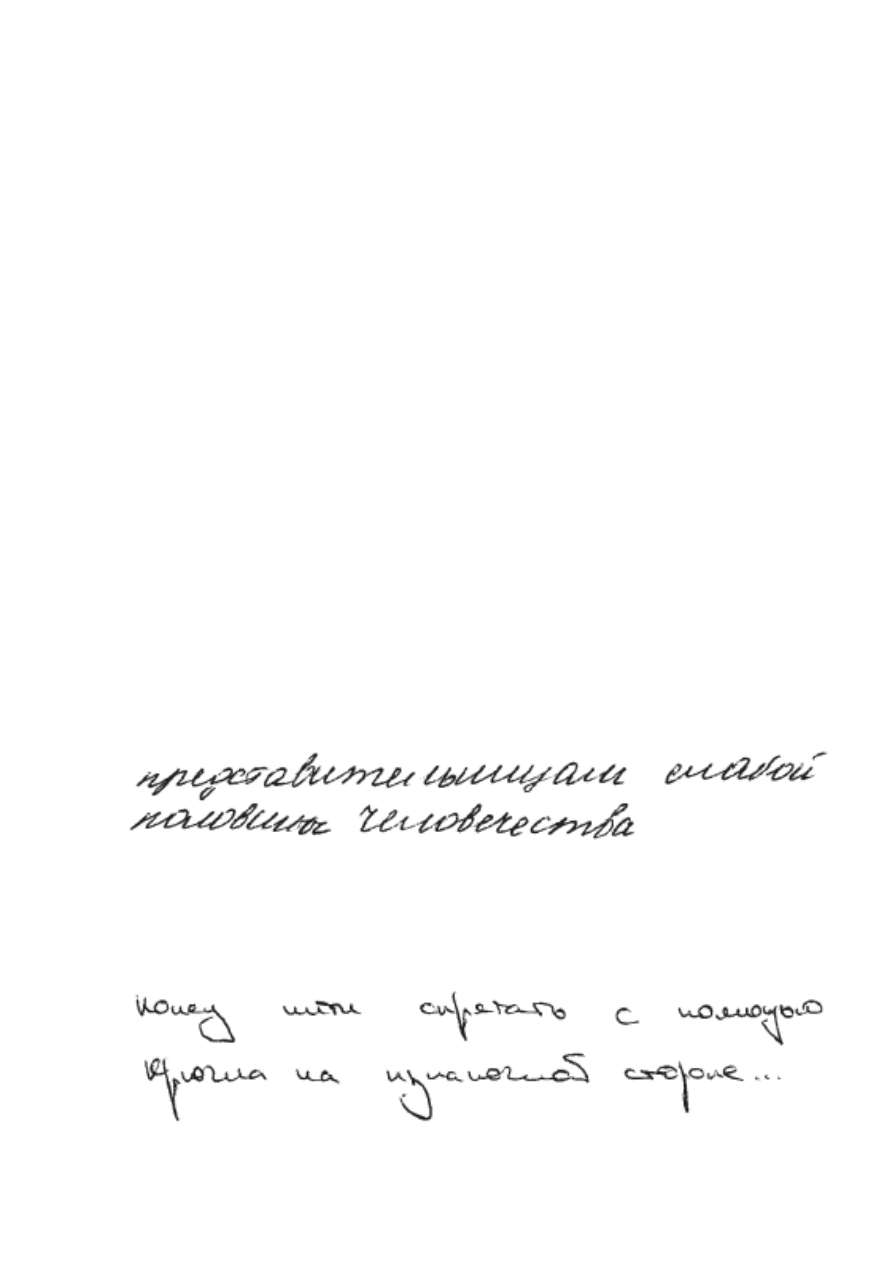 представительницам слабой
половины человечества
конец нити спрятать с помощью
крючка на изнаночной стороне...